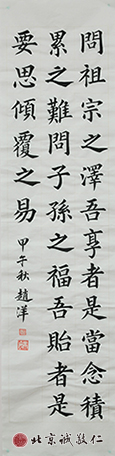 問祖宗之澤吾享者是當念積
累之難問子孫之福吾貽者是
要思傾覆之易
甲午秋趙洋
北京誠敬仁